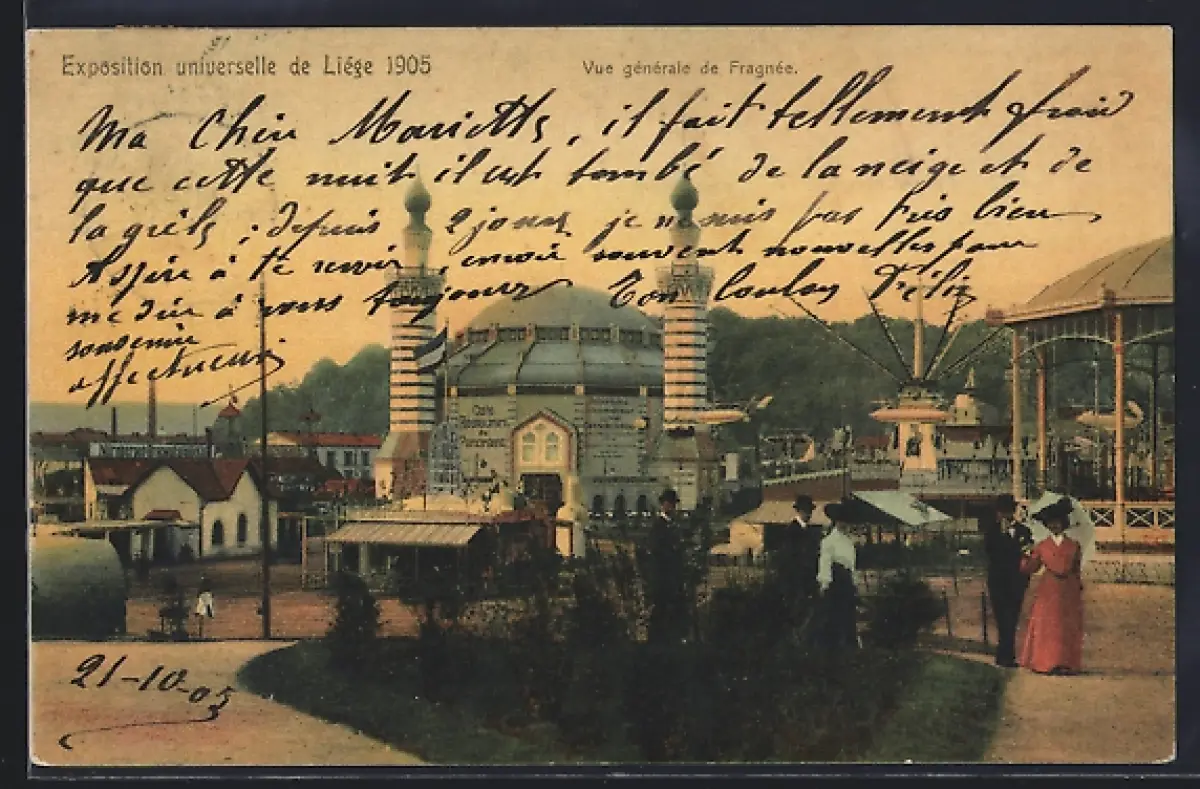 Exposition universelle de Liége 1905
Vue générale de Fragnée.
Ma Chèr Mariette, il fait tellement froid
que cette nuit il est tombé de la neige et de
la grêle, depuis 2 jours je ne suis pas très bien
espère à te revoir, envoie souvent nouvelles pour
me dire à vous toujours Ton Félix
souvenir
affectueux
Café
Restaurant
du
Panorama
21-10-05